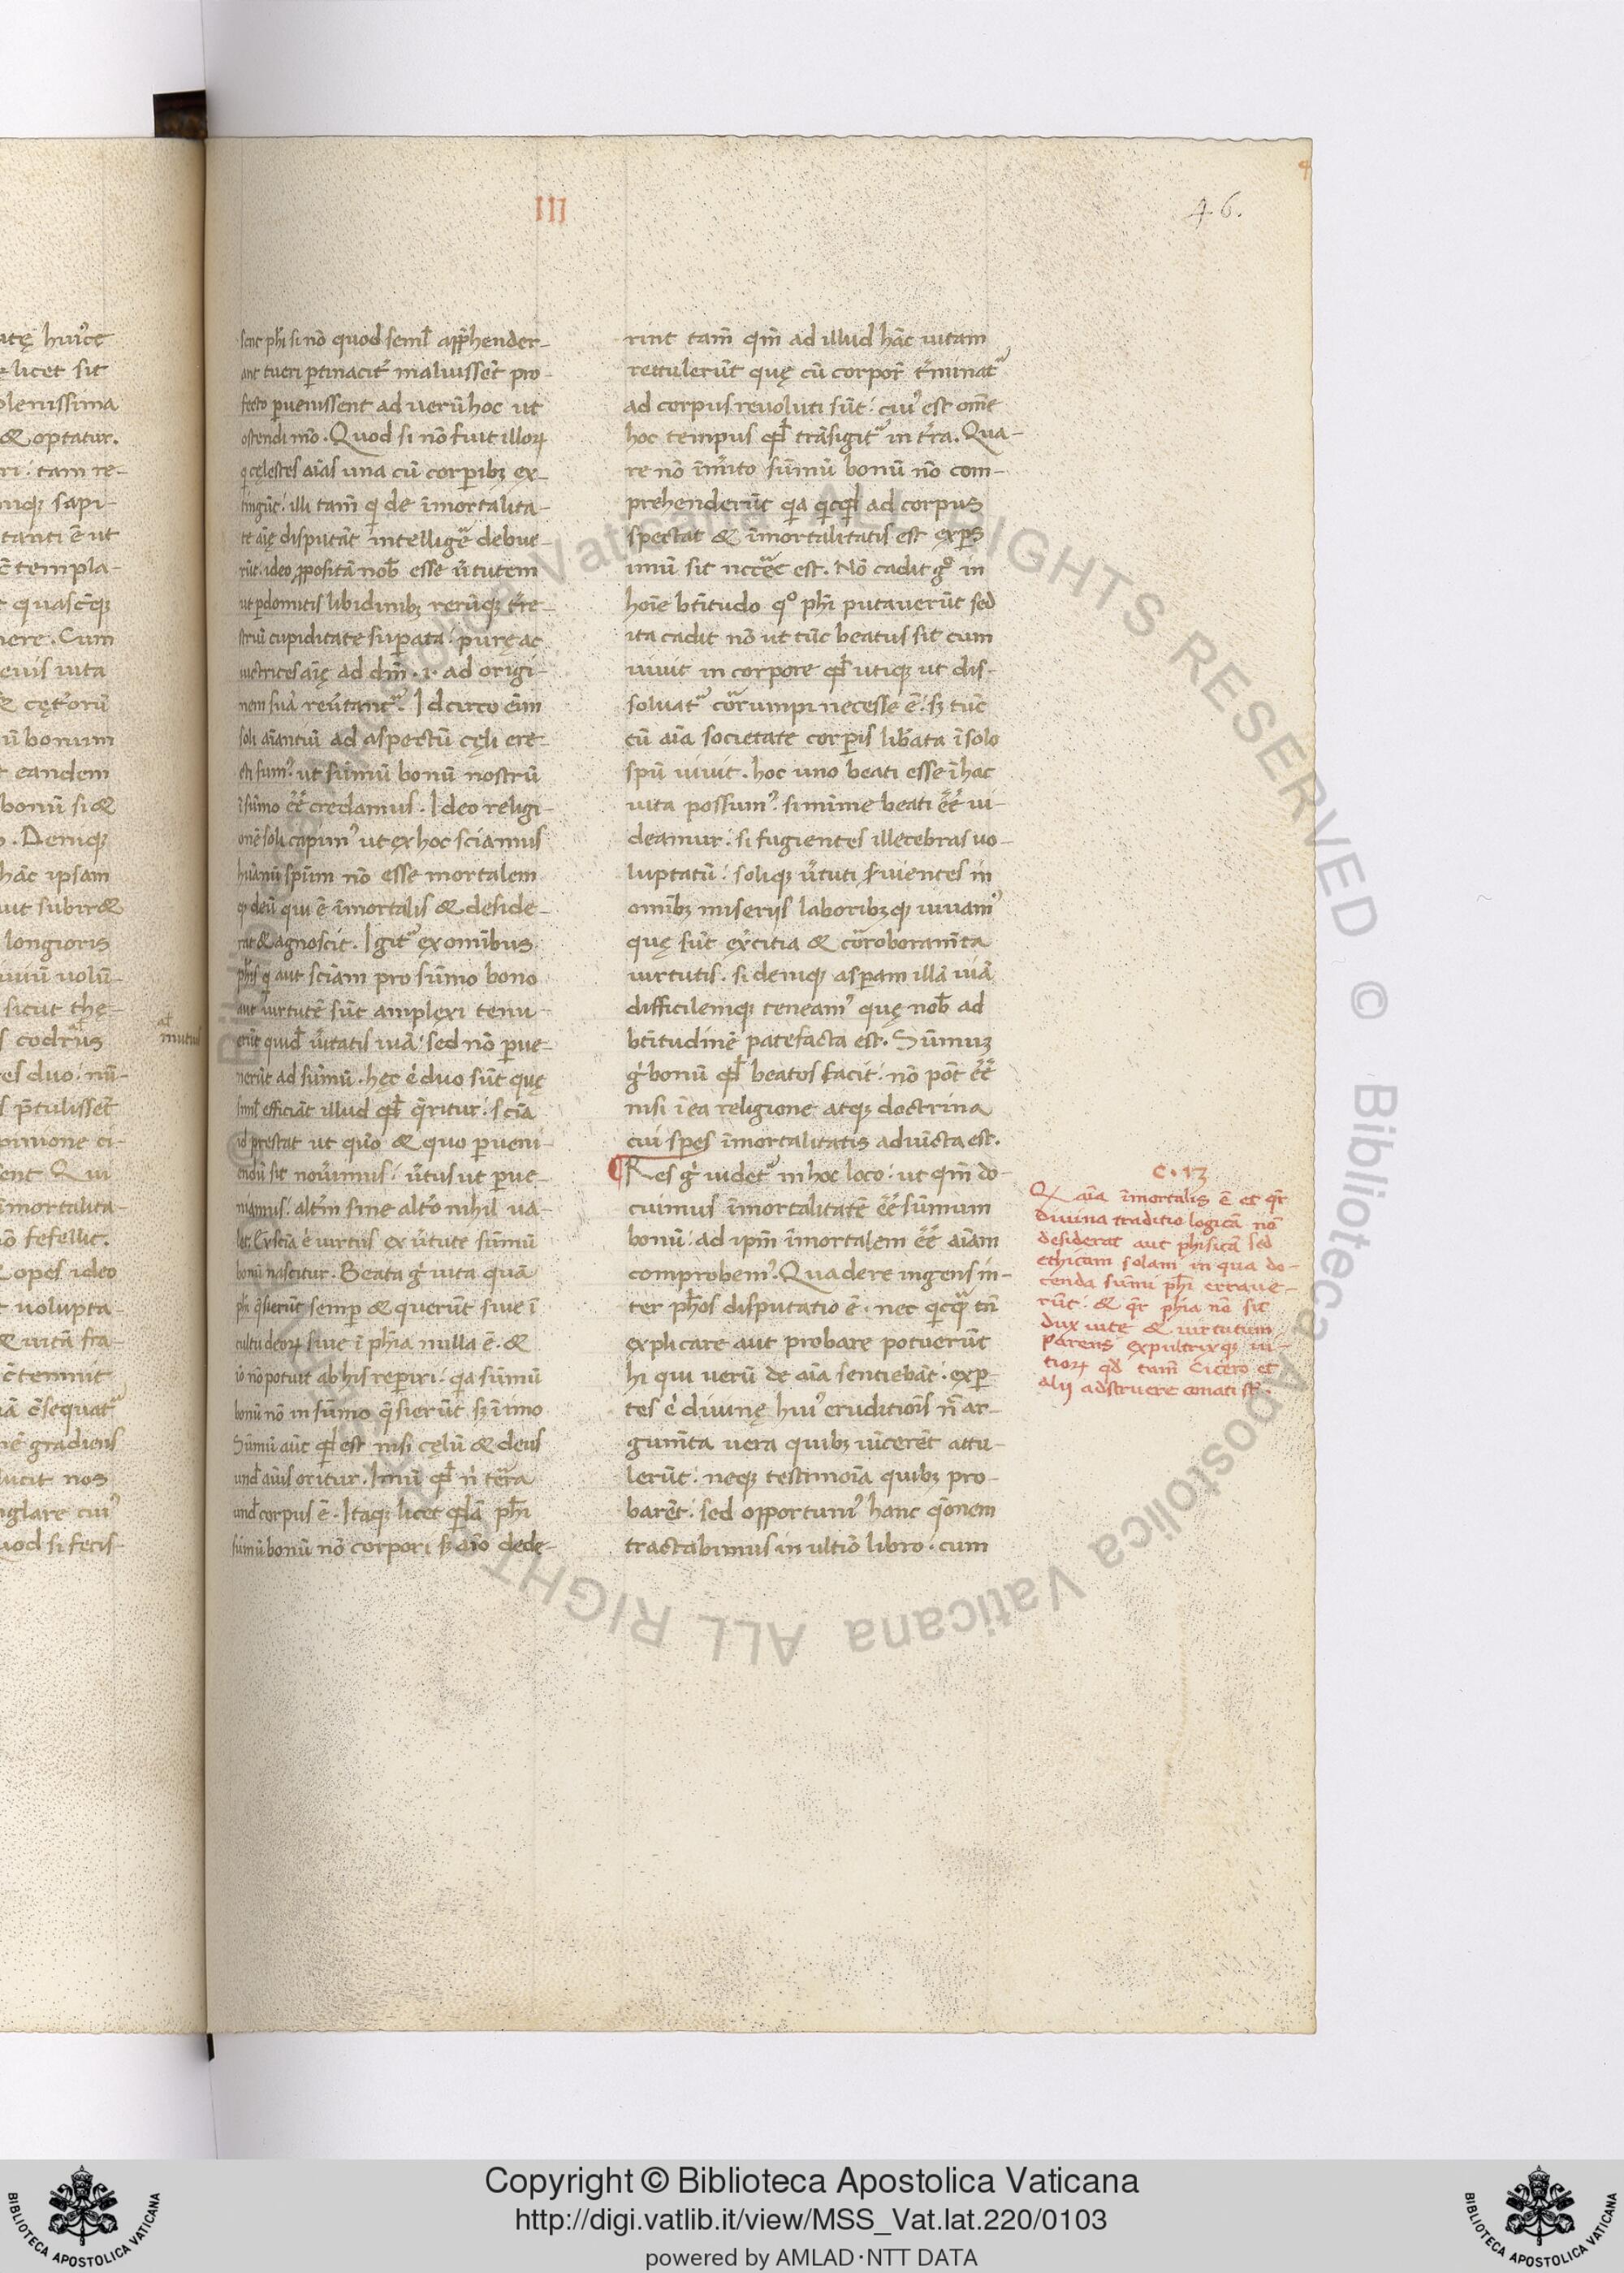 III
46.
sent phi si nō quod semł apphender-
ant tueri ptinacit' maluissēt pro-
fecto puenissent ad uerū hoc ut
ostendimō. Quod si nō fuit illoꝝ
q cęlestes aīas una cū corpibꝫ ex-
tingūt: illi tam̄ q de īmortalita-
te aīę disputāt intelligē debue-
rūt. ideo ppositā nob̄ esse ūtutem
ut pdomitis libidinibꝫ rerūqꝫ t're-
striū cupiditate supata. purę ac
uictrices aīę ad dm̄ .i. ad origi-
nem suā reūtant'. Idcirco eīm
soli aīantiū ad aspectū cęli ere-
cti sum'. ut sūmū bonū nostrū
ī sūmo ēē credamus. Ideo religi-
onē soli capim' ut ex hoc sciamus
huānū spūm nō esse mortalem
qꝫ deū qui ē īmortalis & deside-
rat & agnoscit. Igit' ex omībus
phīs q aut sciām pro sūmo bono
aut uirtutē sūt amplexi tenu-
erūt quid' ūitatis uiā: sed nō pue-
nerūt ad sūmū. hęc .n. duo sūt quę
simł efficiāt illud qd q̄ritur: scīa
id prestat ut quō & quo pueni-
endū sit nouimus: ūtus ut pue-
niamus: altm̄ sine altō nihil ua-
let. Ex scīa .n. uirtus ex ūtute sūmū
bonū nascitur. Beata g̊ uita quā
phī q̄sierūt semp & querūt siue ī
cultu deoꝝ siue ī phīa nulla ē. &
iō nō potuit ab his repiri: qa sūmū
bonū nō in sūmo q̄sierūt sꝫ ī imo
Sūmū aūt qd est nisi cęlū & deus
und' aīus oritur. Imū qd n' terra
und' corpus ē. Itaqꝫ licet qdā phī
sūmū bonū nō corpori sꝫ aīo dede-
rint tam̄ qm̄ ad illud hāc uitam
rettulerūt quę cū corpore t'minat'
ad corpus reuoluti sūt: cui' est om̄e
hoc tempus qd trāsigit' in t'ra. Qua-
re nō īm'ito sūmū bonū nō com-
prehenderūt qa qcqd ad corpus
spectat & īmortalitatis est exps
imū sit nccē est. Nō cadit g̊ in
hoīe btītudo q° phī putauerūt sed
ita cadit nō ut tūc beatus sit cum
uiuit in corpore qd utiqꝫ ut dis-
soluat' corrumpi necesse ē: sꝫ tūc
cū aīa societate corpis libata ī solo
spū uiuit. hoc uno beati esse ī hac
uita possum'. si minime beati ēē ui-
deamur: si fugientes illecebras uo-
luptatū: soliqꝫ ūtuti s'uientes in
omībꝫ miserijs laboribꝫqꝫ uiuam'
quę sūt ex'citia & corroboram̄ta
uirtutis. si deniqꝫ aspam illā uiā
difficilemqꝫ teneam' quę nob̄ ad
btītudinē patefacta est. Sūmuꝫ
g̊ bonū qd beatos facit: nō pōt ēē
nisi ī ea religione atqꝫ doctrina
cui spes īmortalitatis adiūcta est.
Res g̊ uidet' in hoc loco: ut qm̄ do-
cuimus īmortalitatē ēē sūmum
bonū: ad ipm̄ īmortalem ēē aīam
comprobem'. Qua de re ingens in-
ter phōs disputatio ē. nec qcq̄ tn̄
explicare aut probare potuerūt
hi qui uerū de aīa sentiebāt: exp-
tes .n. diuinę hui' eruditiōis n̄ ar-
gum̄ta uera quibꝫ uīcerēt attu-
lerūt: neqꝫ testimōīa quibꝫ pro-
barēt: sed opportuni' hanc q̄onem
tractabimus in ultiō libro. cum
c. 13
Qꝫ aīa īmortalis ē et qr
diuina traditio logicā nō
desiderat aut phisicā sed
ethicam solam in qua do-
cenda sūmi phī erraue-
rūt: & qr phīa nō sit
dux uite & uirtutum
parens expultrixqꝫ ui-
tioꝝ qd tam̄ Cicero et
alij adstruere conati sūt.
Copyright © Biblioteca Apostolica Vaticana
http://digi.vatlib.it/view/MSS_Vat.lat.220/0103
powered by AMLAD·NTT DATA